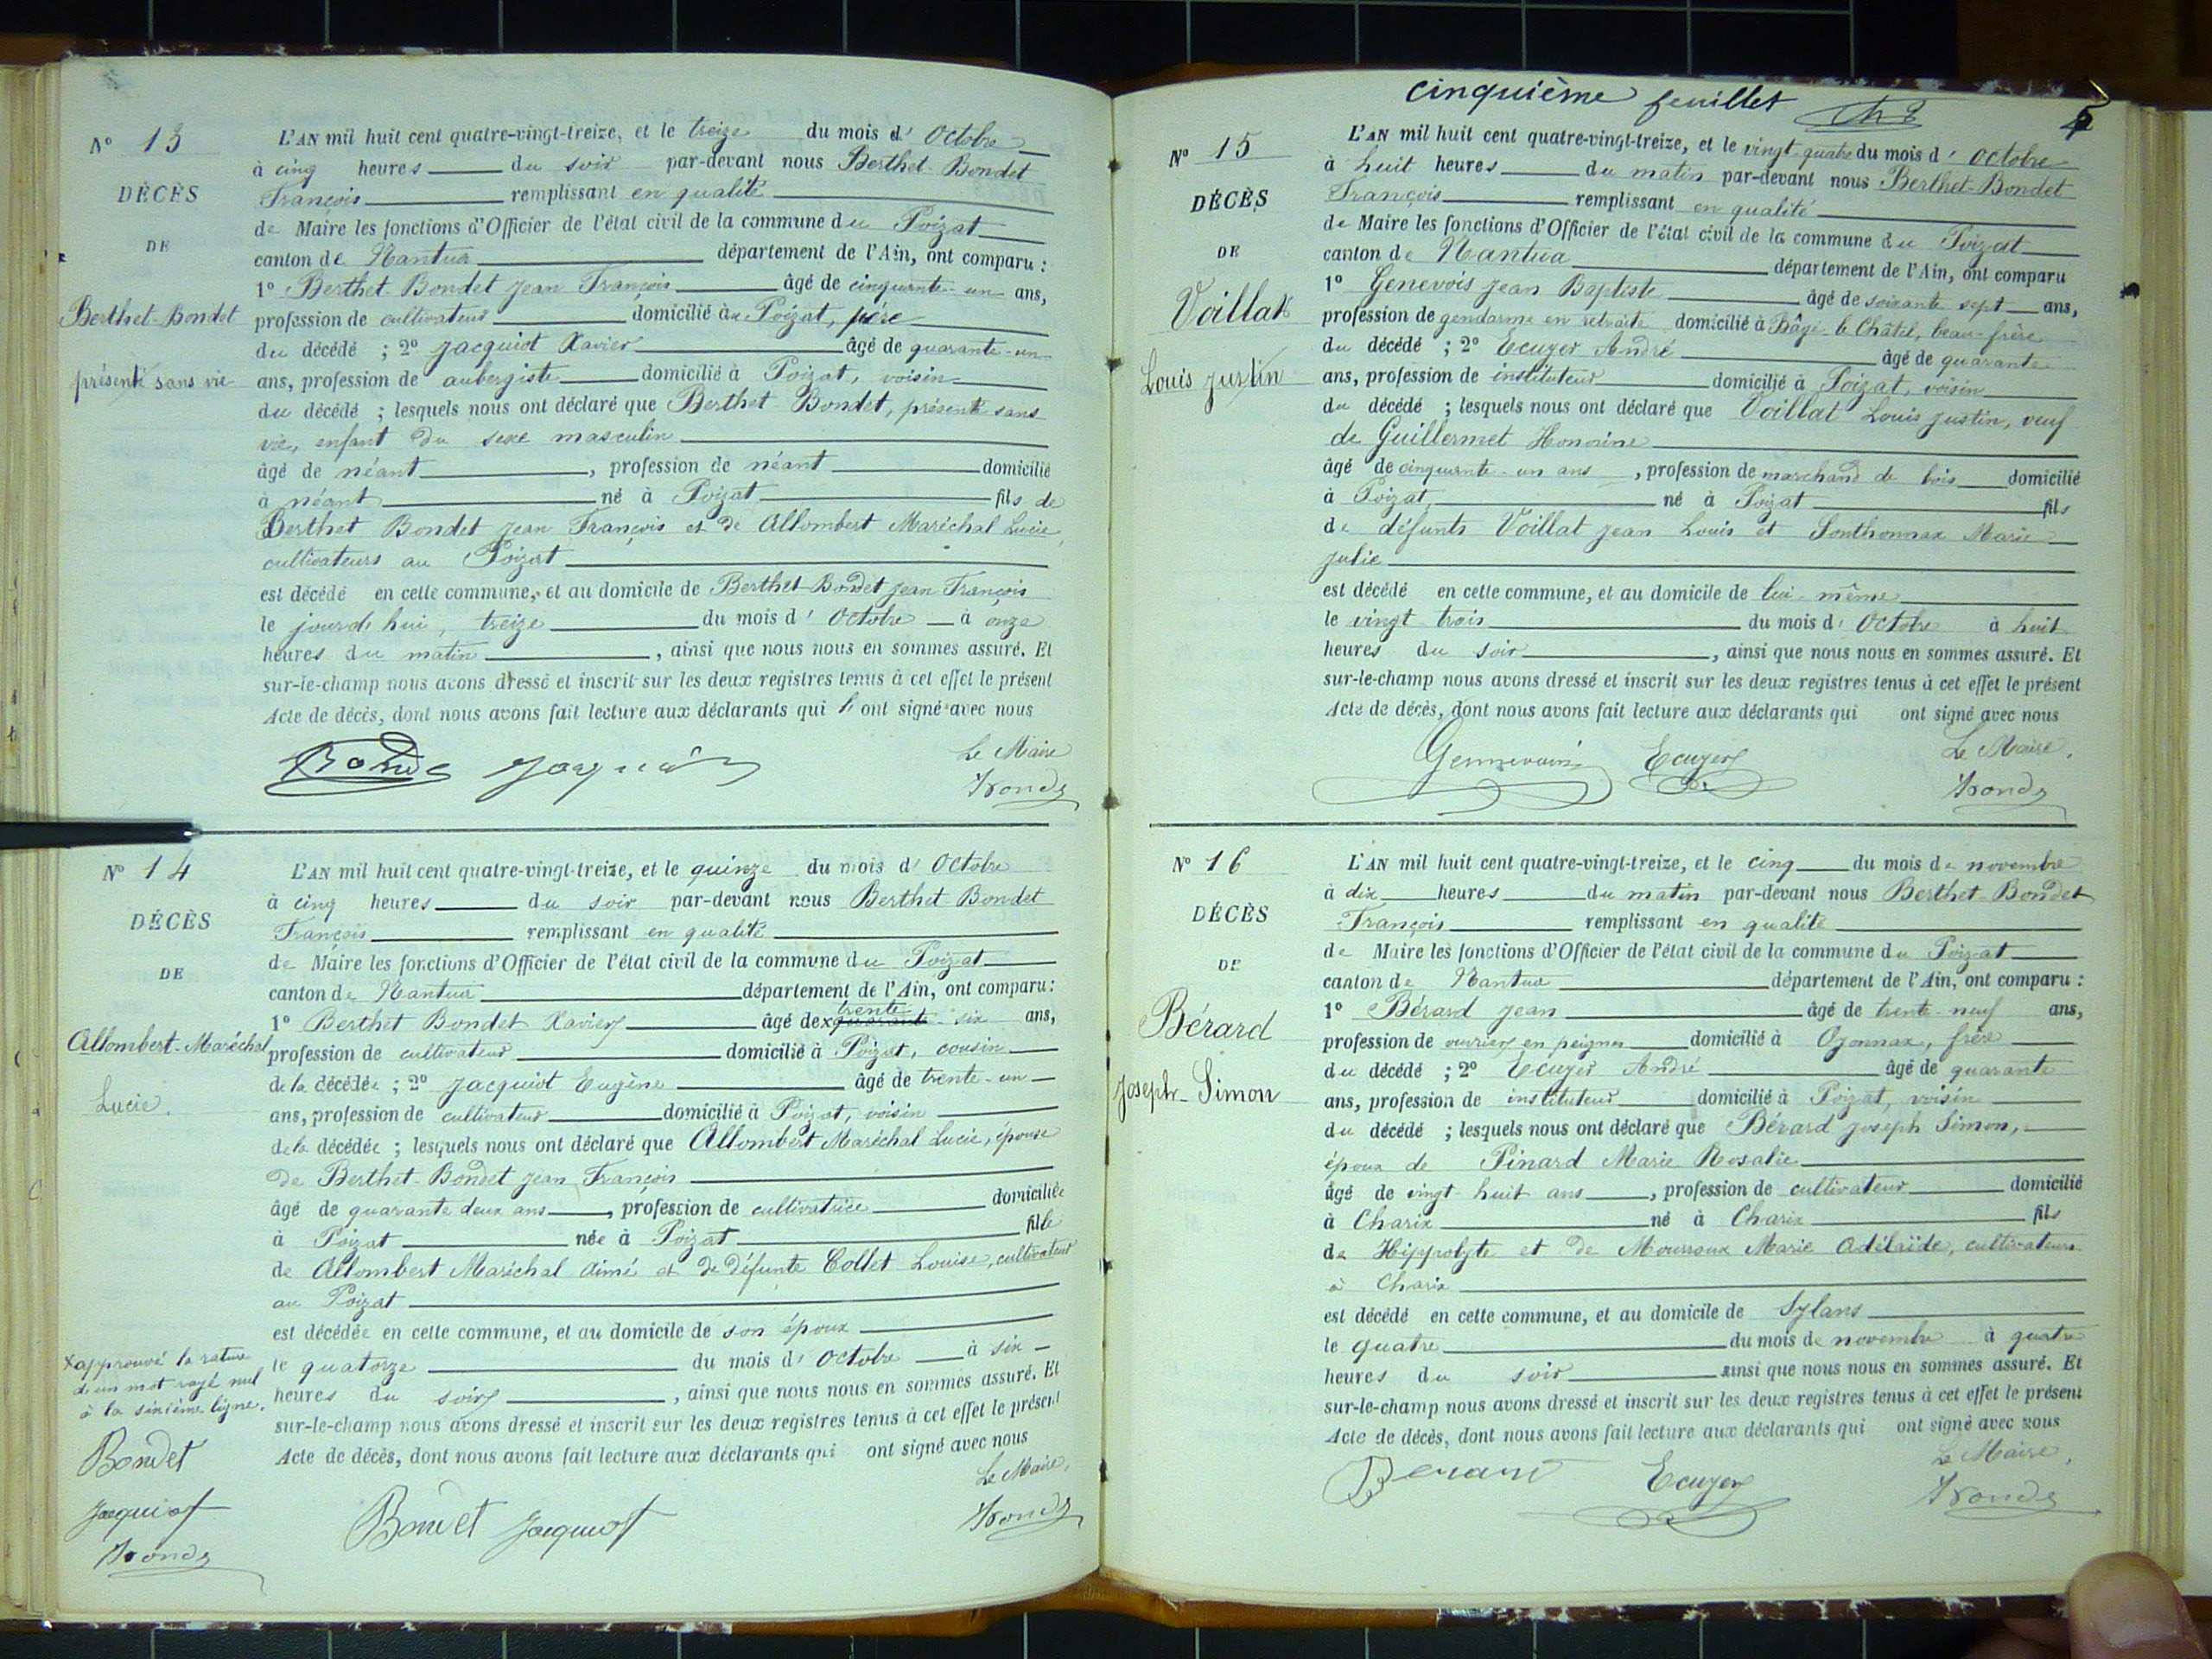 N° 13
DÉCÈS
DE
Berthet-Bondet
présenté sans vie
L'AN mil huit cent quatre-vingt-treize, et le treize du mois d'Octobre
à cinq heures du soir par-devant nous Berthet-Bondet
François remplissant en qualité
de Maire les fonctions d'Officier de l'état civil de la commune du Poizat
canton de Nantua département de l'Ain, ont comparu :
1° Berthet-Bondet Jean François âgé de cinquante-un ans,
profession de cultivateur domicilié au Poizat, père
du décédé ; 2° Jacquiot Xavier âgé de quarante-un
ans, profession de aubergiste domicilié à Poizat, voisin
du décédé ; lesquels nous ont déclaré que Berthet-Bondet, présenté sans
vie, enfant du sexe masculin
âgé de néant, profession de néant domicilié
à néant né à Poizat fils de
Berthet Bondet Jean François et de Allombert Maréchal Lucie,
cultivateurs au Poizat
est décédé en cette commune, et au domicile de Berthet-Bondet Jean François
le jourd'hui, treize du mois d'Octobre à onze
heures du matin, ainsi que nous nous en sommes assuré. Et
sur-le-champ nous avons dressé et inscrit sur les deux registres tenus à cet effet le présent
Acte de décès, dont nous avons fait lecture aux déclarants qui ont signé avec nous
Le Maire
N° 14
DÉCÈS
DE
Allombert-Maréchal
Lucie.
L'AN mil huit cent quatre-vingt-treize, et le quinze du mois d'Octobre
à cinq heures du soir par-devant nous Berthet Bondet
François remplissant en qualité
de Maire les fonctions d'Officier de l'état civil de la commune du Poizat
canton de Nantua département de l'Ain, ont comparu :
trente
1° Berthet Bondet Xavier âgé de x quarante-six ans,
profession de cultivateur domicilié à Poizat, cousin
de la décédée ; 2° Jacquiot Eugène âgé de trente-un
ans, profession de cultivateur domicilié à Poizat, voisin
de la décédée ; lesquels nous ont déclaré que Allombert Maréchal Lucie, épouse
de Berthet-Bondet Jean François
âgé de quarante deux ans, profession de cultivatrice domiciliée
à Poizat née à Poizat fille
de Allombert Maréchal Aimé et de défunte Collet Louise, cultivateur
au Poizat
est décédée en cette commune, et au domicile de son époux
le quatorze du mois d'Octobre à six
heures du soir, ainsi que nous nous en sommes assuré. Et
sur-le-champ nous avons dressé et inscrit sur les deux registres tenus à cet effet le présent
Acte de décès, dont nous avons fait lecture aux déclarants qui ont signé avec nous
Le Maire,
x approuvé la rature
d'un mot rayé nul
à la sixième ligne.
Bondet
Jacquiot
Bondet Jacquiot
cinquième feuillet
5
N° 15
DÉCÈS
DE
Voillat
Louis Justin
L'AN mil huit cent quatre-vingt-treize, et le vingt-quatre du mois d'Octobre
à huit heures du matin par-devant nous Berthet-Bondet
François remplissant en qualité
de Maire les fonctions d'Officier de l'état civil de la commune du Poizat
canton de Nantua département de l'Ain, ont comparu
1° Genevois Jean Baptiste âgé de soixante sept ans,
profession de gendarme en retraite domicilié à Bâgé-le Châtel, beau-frère
du décédé ; 2° Ecuyer André âgé de quarante
ans, profession de instituteur domicilié à Poizat, voisin
du décédé ; lesquels nous ont déclaré que Voillat Louis Justin, veuf
de Guillermet Honorine
âgé de cinquante-un ans, profession de marchand de bois domicilié
à Poizat né à Poizat fils
de défunts Voillat Jean Louis et Sonthonnax Marie
Julie
est décédé en cette commune, et au domicile de lui-même
le vingt-trois du mois d'Octobre à huit
heures du soir, ainsi que nous nous en sommes assuré. Et
sur-le-champ nous avons dressé et inscrit sur les deux registres tenus à cet effet le présent
Acte de décès, dont nous avons fait lecture aux déclarants qui ont signé avec nous
Le Maire,
Ecuyer
N° 16
DÉCÈS
DE
Bérard
Joseph-Simon
L'AN mil huit cent quatre-vingt-treize, et le cinq du mois de novembre
à dix heures du matin par-devant nous Berthet-Bondet
François remplissant en qualité
de Maire les fonctions d'Officier de l'état civil de la commune du Poizat
canton de Nantua département de l'Ain, ont comparu :
1° Bérard Jean âgé de trente-neuf ans,
profession de ouvrier en peignes domicilié à Oyonnax, frère
du décédé ; 2° Ecuyer André âgé de quarante
ans, profession de instituteur domicilié à Poizat, voisin
du décédé ; lesquels nous ont déclaré que Bérard Joseph Simon,
époux de Pinard Marie Rosalie
âgé de vingt-huit ans, profession de cultivateur domicilié
à Charix né à Charix fils
de Hippolyte et de Moussoux Marie Adélaïde, cultivateurs
à Charix
est décédé en cette commune, et au domicile de Sylans
le quatre du mois de novembre à quatre
heures du soir ainsi que nous nous en sommes assuré. Et
sur-le-champ nous avons dressé et inscrit sur les deux registres tenus à cet effet le présent
Acte de décès, dont nous avons fait lecture aux déclarants qui ont signé avec nous
Le Maire,
Berard Ecuyer